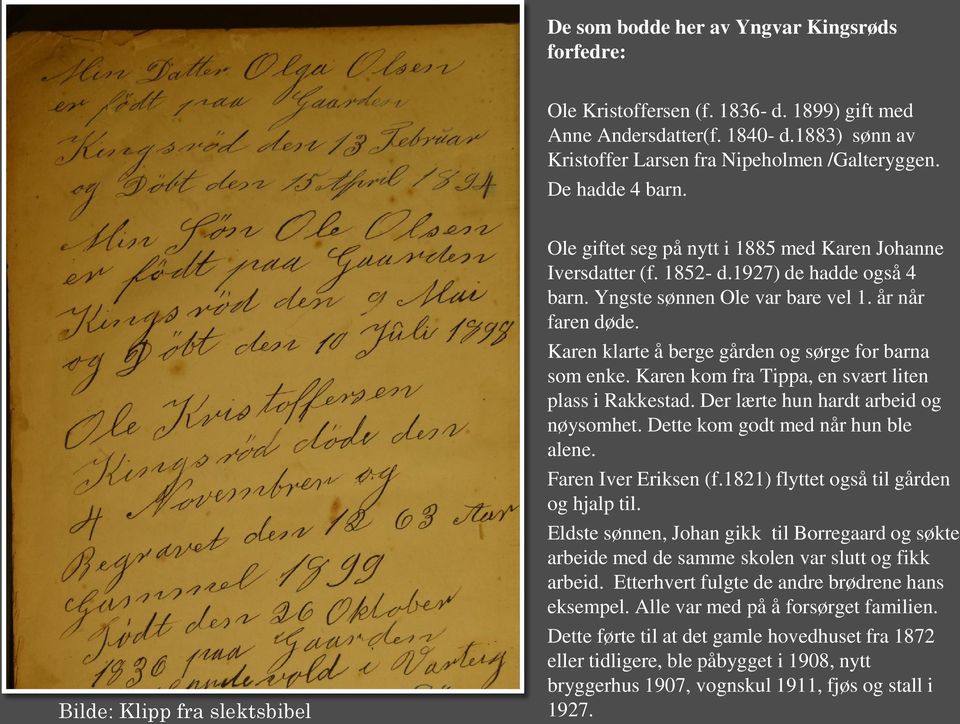 Min Datter Olga Olsen
er födt paa Gaarden
Kingsröd den 13 Februar
og Döbt den 15 April 1894
Min Sön Ole Olsen
er födt paa Gaarden
Kingsröd den 9 Mai
og Döbt den 10 Júli 1898
Ole Kristoffersen
Kingsröd döde den
4 Novembren og
Begravet den 12 63 Aar
Gammel 1899
Födt den 26 Oktober
1836 paa Gaarden
i Varteig
Bilde: Klipp fra slektsbibel
De som bodde her av Yngvar Kingsrøds
forfedre:
Ole Kristoffersen (f. 1836- d. 1899) gift med
Anne Andersdatter(f. 1840- d.1883) sønn av
Kristoffer Larsen fra Nipeholmen /Galteryggen.
De hadde 4 barn.
Ole giftet seg på nytt i 1885 med Karen Johanne
Iversdatter (f. 1852- d.1927) de hadde også 4
barn. Yngste sønnen Ole var bare vel 1. år når
faren døde.
Karen klarte å berge gården og sørge for barna
som enke. Karen kom fra Tippa, en svært liten
plass i Rakkestad. Der lærte hun hardt arbeid og
nøysomhet. Dette kom godt med når hun ble
alene.
Faren Iver Eriksen (f.1821) flyttet også til gården
og hjalp til.
Eldste sønnen, Johan gikk til Borregaard og søkte
arbeide med de samme skolen var slutt og fikk
arbeid. Etterhvert fulgte de andre brødrene hans
eksempel. Alle var med på å forsørget familien.
Dette førte til at det gamle hovedhuset fra 1872
eller tidligere, ble påbygget i 1908, nytt
bryggerhus 1907, vognskul 1911, fjøs og stall i
1927.